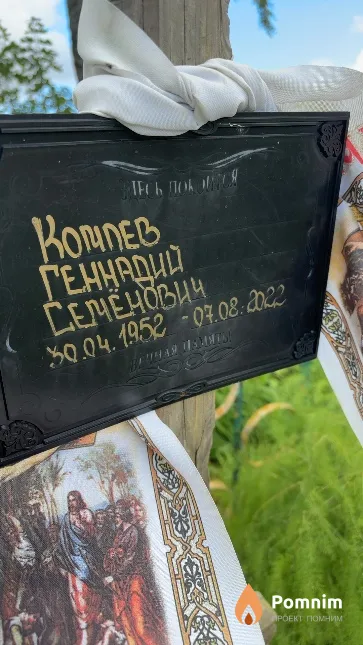 ЗДЕСЬ ПОКОИТСЯ
КОМЛЕВ
ГЕННАДИЙ
СЕМЁНОВИЧ
30.04.1952 - 07.08.2022
ВЕЧНАЯ ПАМЯТЬ
Pomnim
ПРОЕКТ ПОМНИМ